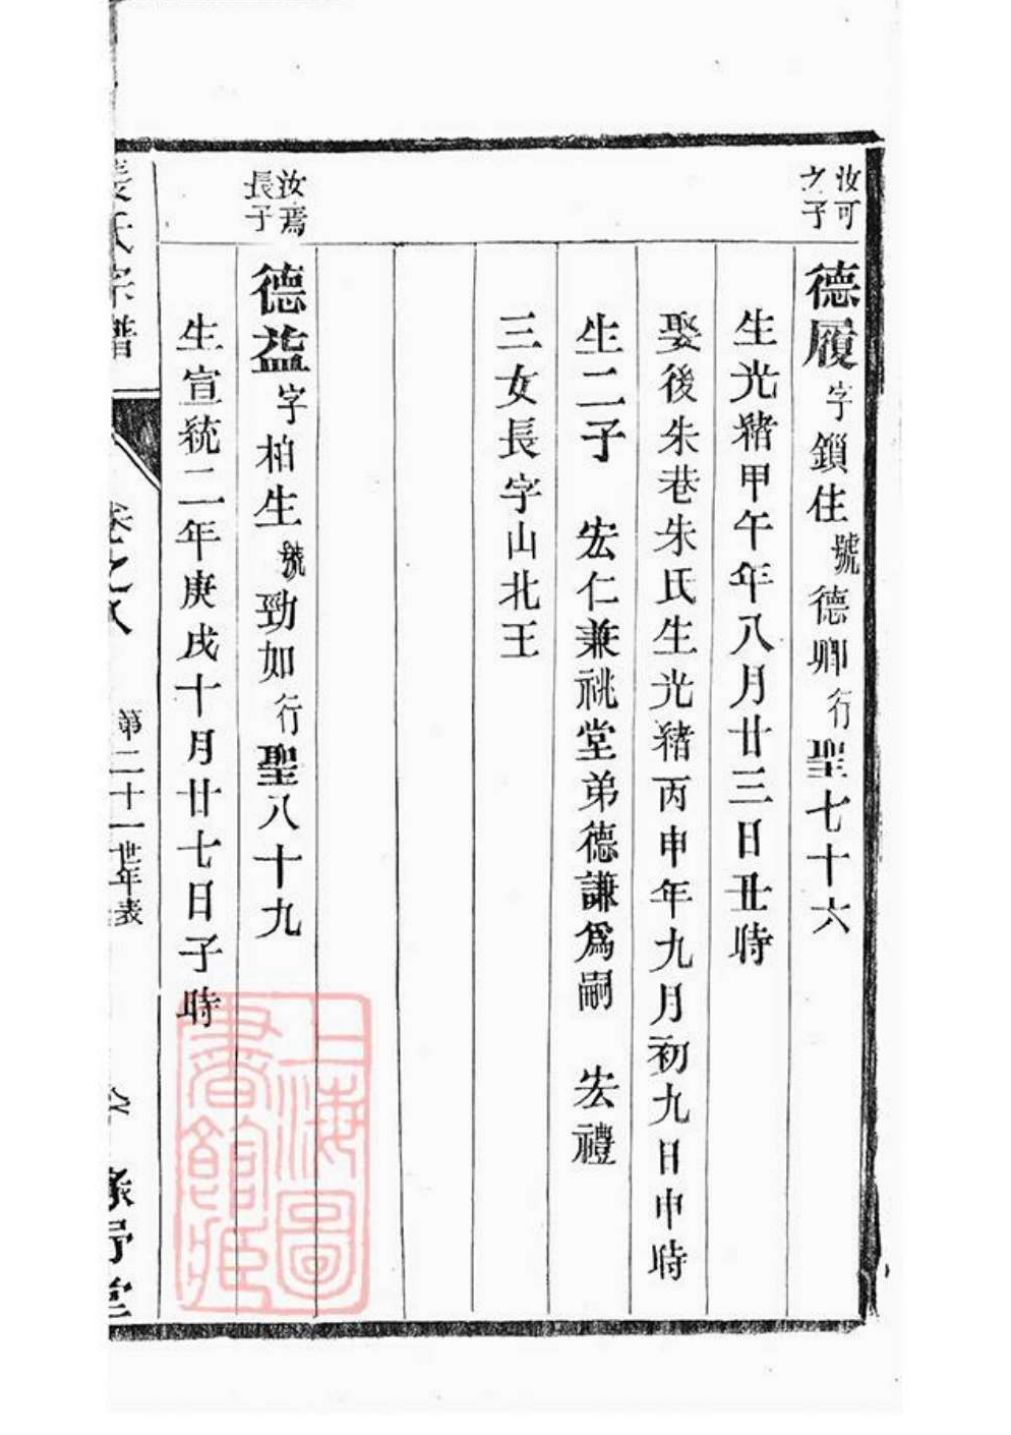 汝可
之子
德履字鎖住號德卿行聖七十六
生光緒甲午年八月廿三日丑時
娶後朱巷朱氏生光緒丙申年九月初九日申時
生二子 宏仁兼祧堂弟德謙爲嗣 宏禮
三女長字山北王
汝焉
長子
德益字柏生號勁如行聖八十九
生宣統二年庚戌十月廿七日子時
氏宗譜
卷之八
第二十一世年表
上海圖
書館藏